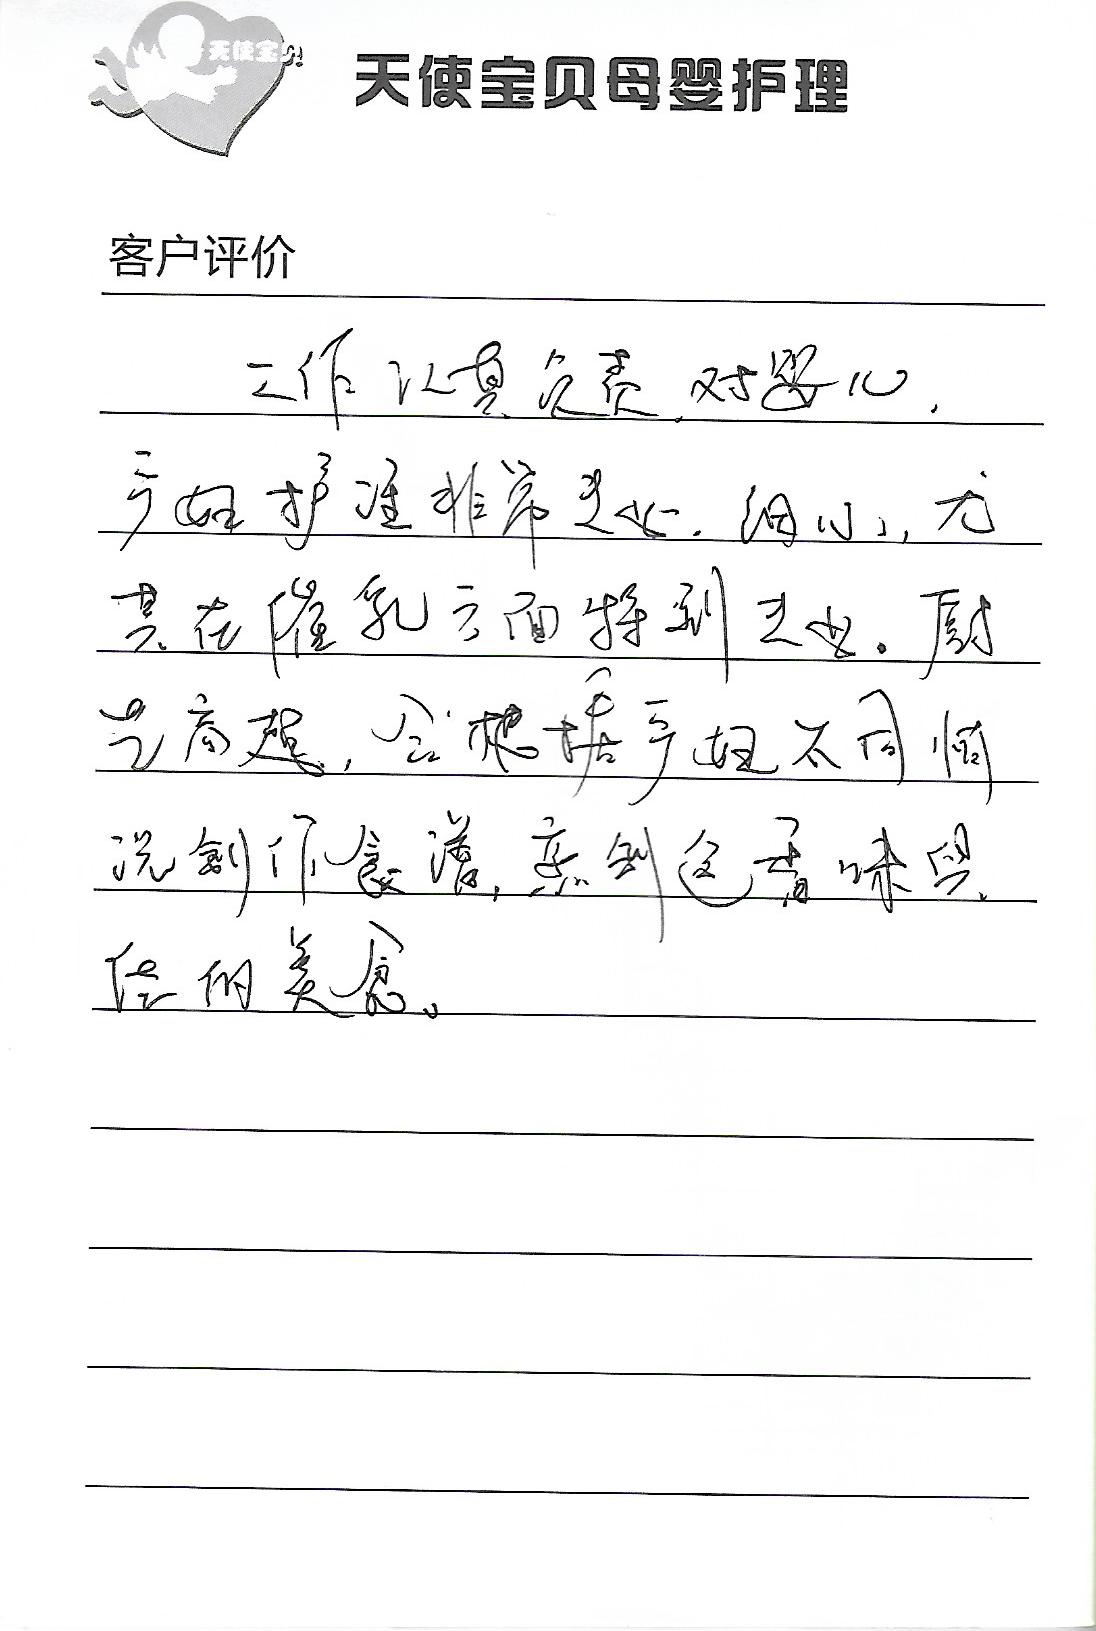 天使宝贝
天使宝贝母婴护理
客户评价
工作认真负责,对婴儿,
产妇护理非常专业,细心,尤
其在催乳方面特别专业。厨
艺高超,会根据产妇不同情
况制作食谱,烹制色香味俱
佳的美食。